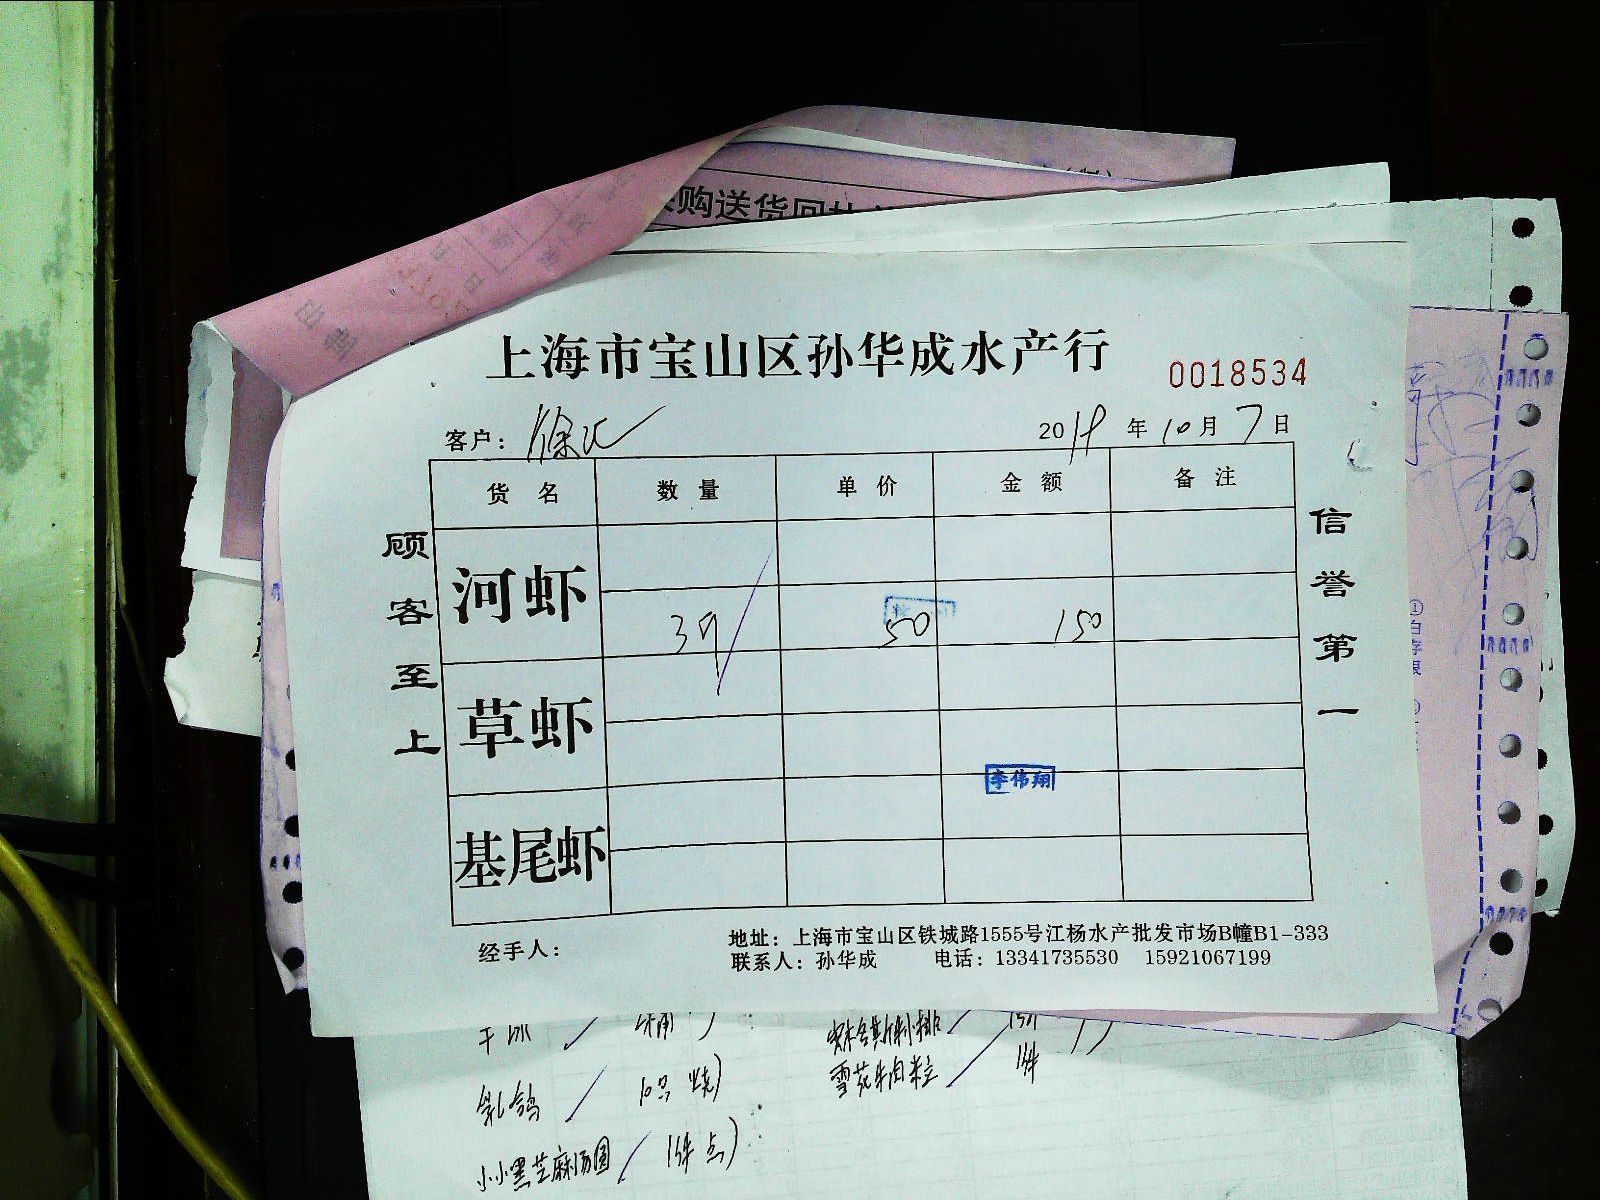 购送货回
上海市宝山区孙华成水产行
0018534
客户: 徐汇
2019年10月7日
货名 数量 单价 金额 备注
河虾
3斤 50 150
草虾
基尾虾
李伟翔
顾客至上
信誉第一
经手人:
地址: 上海市宝山区铁城路1555号江杨水产批发市场B幢B1-333
联系人: 孙华成 电话: 13341735530 15921067199
干冰
乳鸽 10只 烧)
雪花牛肉粒 1件
小小黑芝麻汤圆 1件 点)